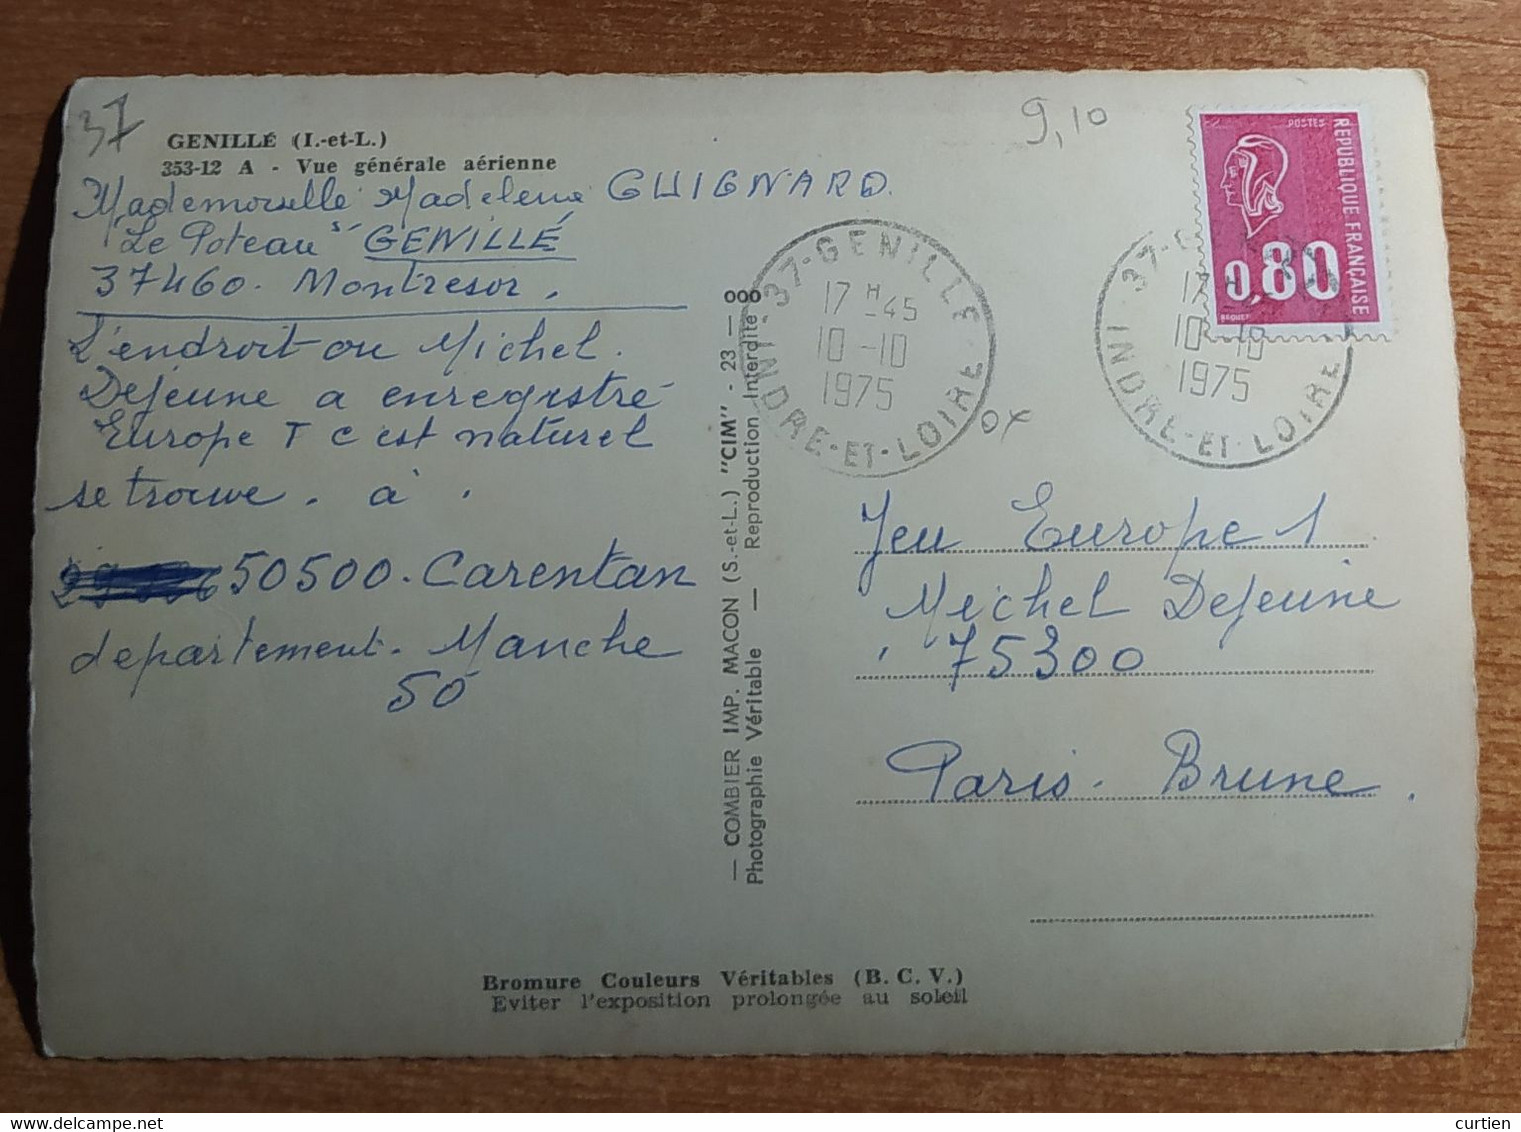 37
GENILLÉ (I.-et-L.)
353-12 A - Vue générale aérienne
Mademoiselle Madeleine GUIGNARD.
"Le Poteau" GENILLÉ
37460. Montresor.
L'endroit ou Michel.
Dejeune a enregistré
Europe T C est naturel
se trouve. à.
50500. Carentan
departement. Manche
50
— COMBIER IMP. MACON (S.-et-L.) "CIM" - 23 — ooo
Photographie Véritable — Reproduction Interdite
9,10
37-GENILLE
17 H 45
10-10
1975
INDRE-ET-LOIRE
37-G
17 H
10-10
1975
INDRE-ET-LOIRE
POSTES
REPUBLIQUE FRANÇAISE
0,80
BEQUET
Jeu Europe 1
Michel Dejeune
75300
Paris. Brune.
Bromure Couleurs Véritables (B. C. V.)
Eviter l'exposition prolongée au soleil
curtien